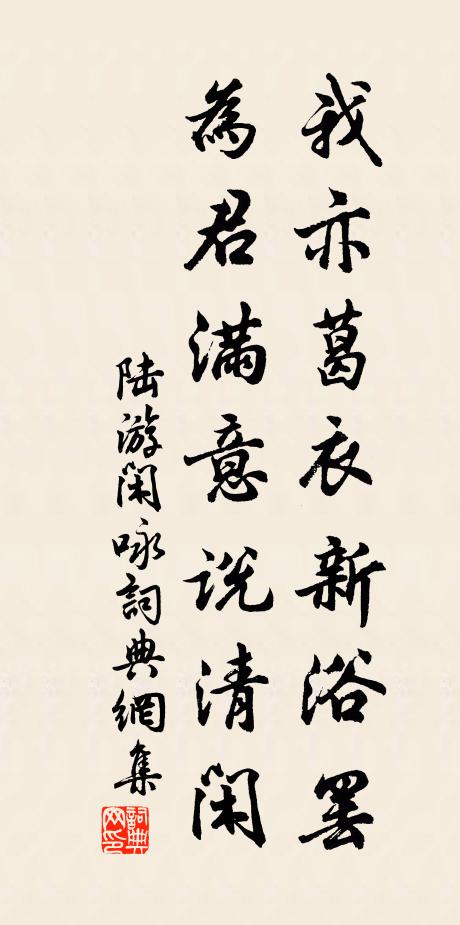 我亦葛衣新浴罢
為君满意説清闲
陆游闲咏詞典網集
詞典网印